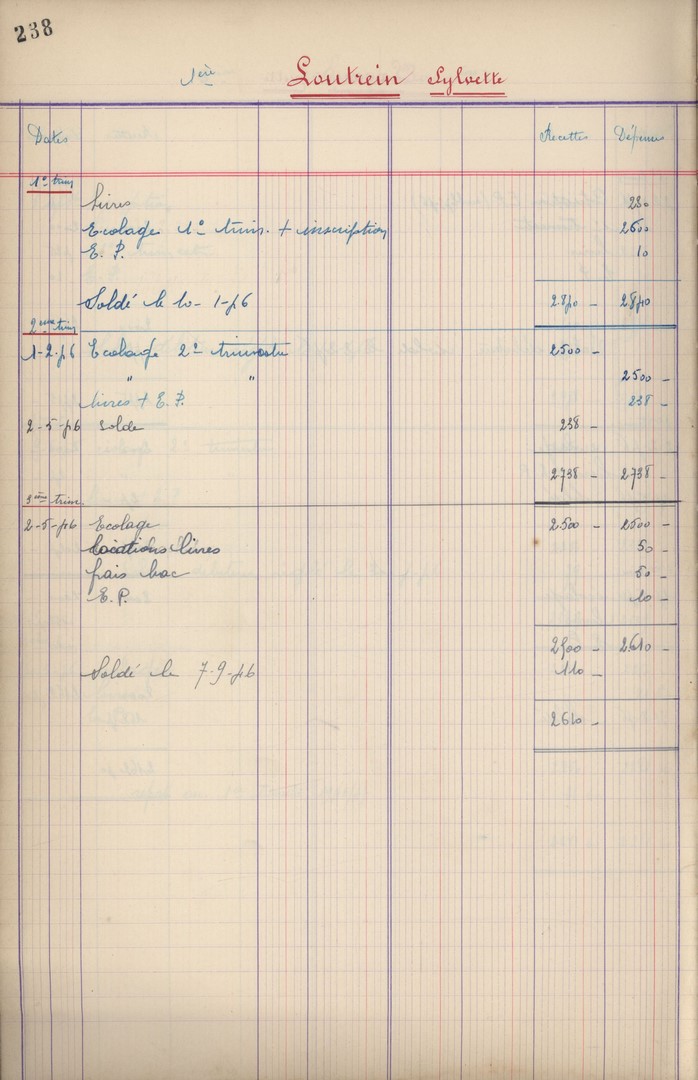 238
1ère Loutrein Sylvette
Dates Recettes Dépenses
1er trim
Livres 230
Ecolage 1er trim. + inscription 2600
E. P. 10
Soldé le 10-1-46 2840 - 2840
2ème trim
1-2-46 Ecolage 2e trimestre 2500 -
" " 2500 -
livres + E. P. 238 -
2-5-46 solde 238 -
2738 - 2738 -
3ème trim
2-5-46 Ecolage 2500 - 2500 -
locations livres 50 -
frais bac 50 -
E.P. 10 -
2500 - 2610 -
Soldé le 7-9-46 110 -
2610 -